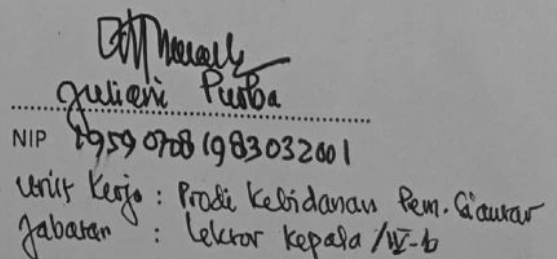 Juliani Purba
NIP 195907081983032001
Unit Kerja : Prodi Kebidanan Pem. Siantar
Jabatan : Lektor Kepala /IV-b